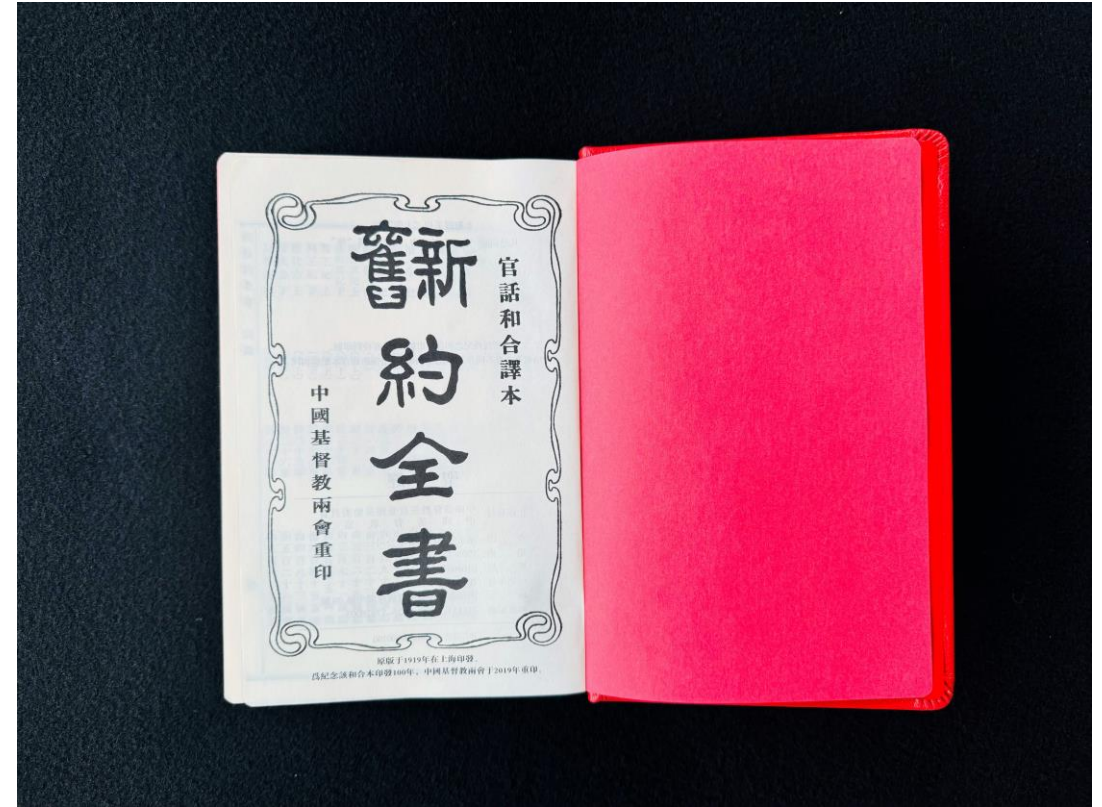 官話和合譯本
新舊
約全書
中國基督教兩會重印
原版于1919年在上海印發.
爲紀念該和合本印發100年，中國基督教兩會于2019年重印.